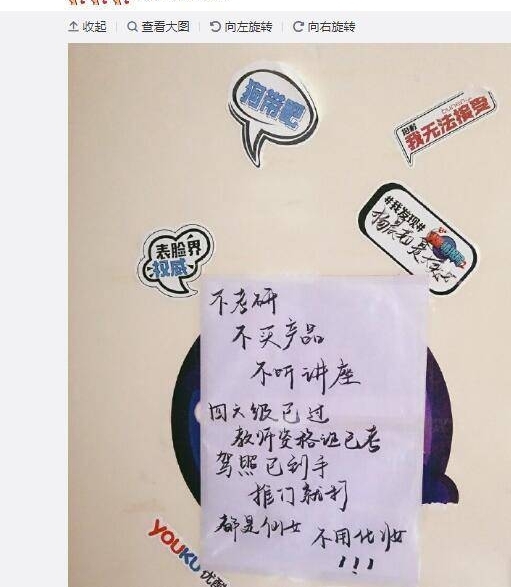 收起
查看大图
向左旋转
向右旋转
狗带吧
我无法接受
表脸界
权威
#我发现#
不考研
不买产品
不听讲座
四六级已过
教师资格证已考
驾照已到手
推门就打
都是仙女 不用化妆
!!!
YOUKU 优酷